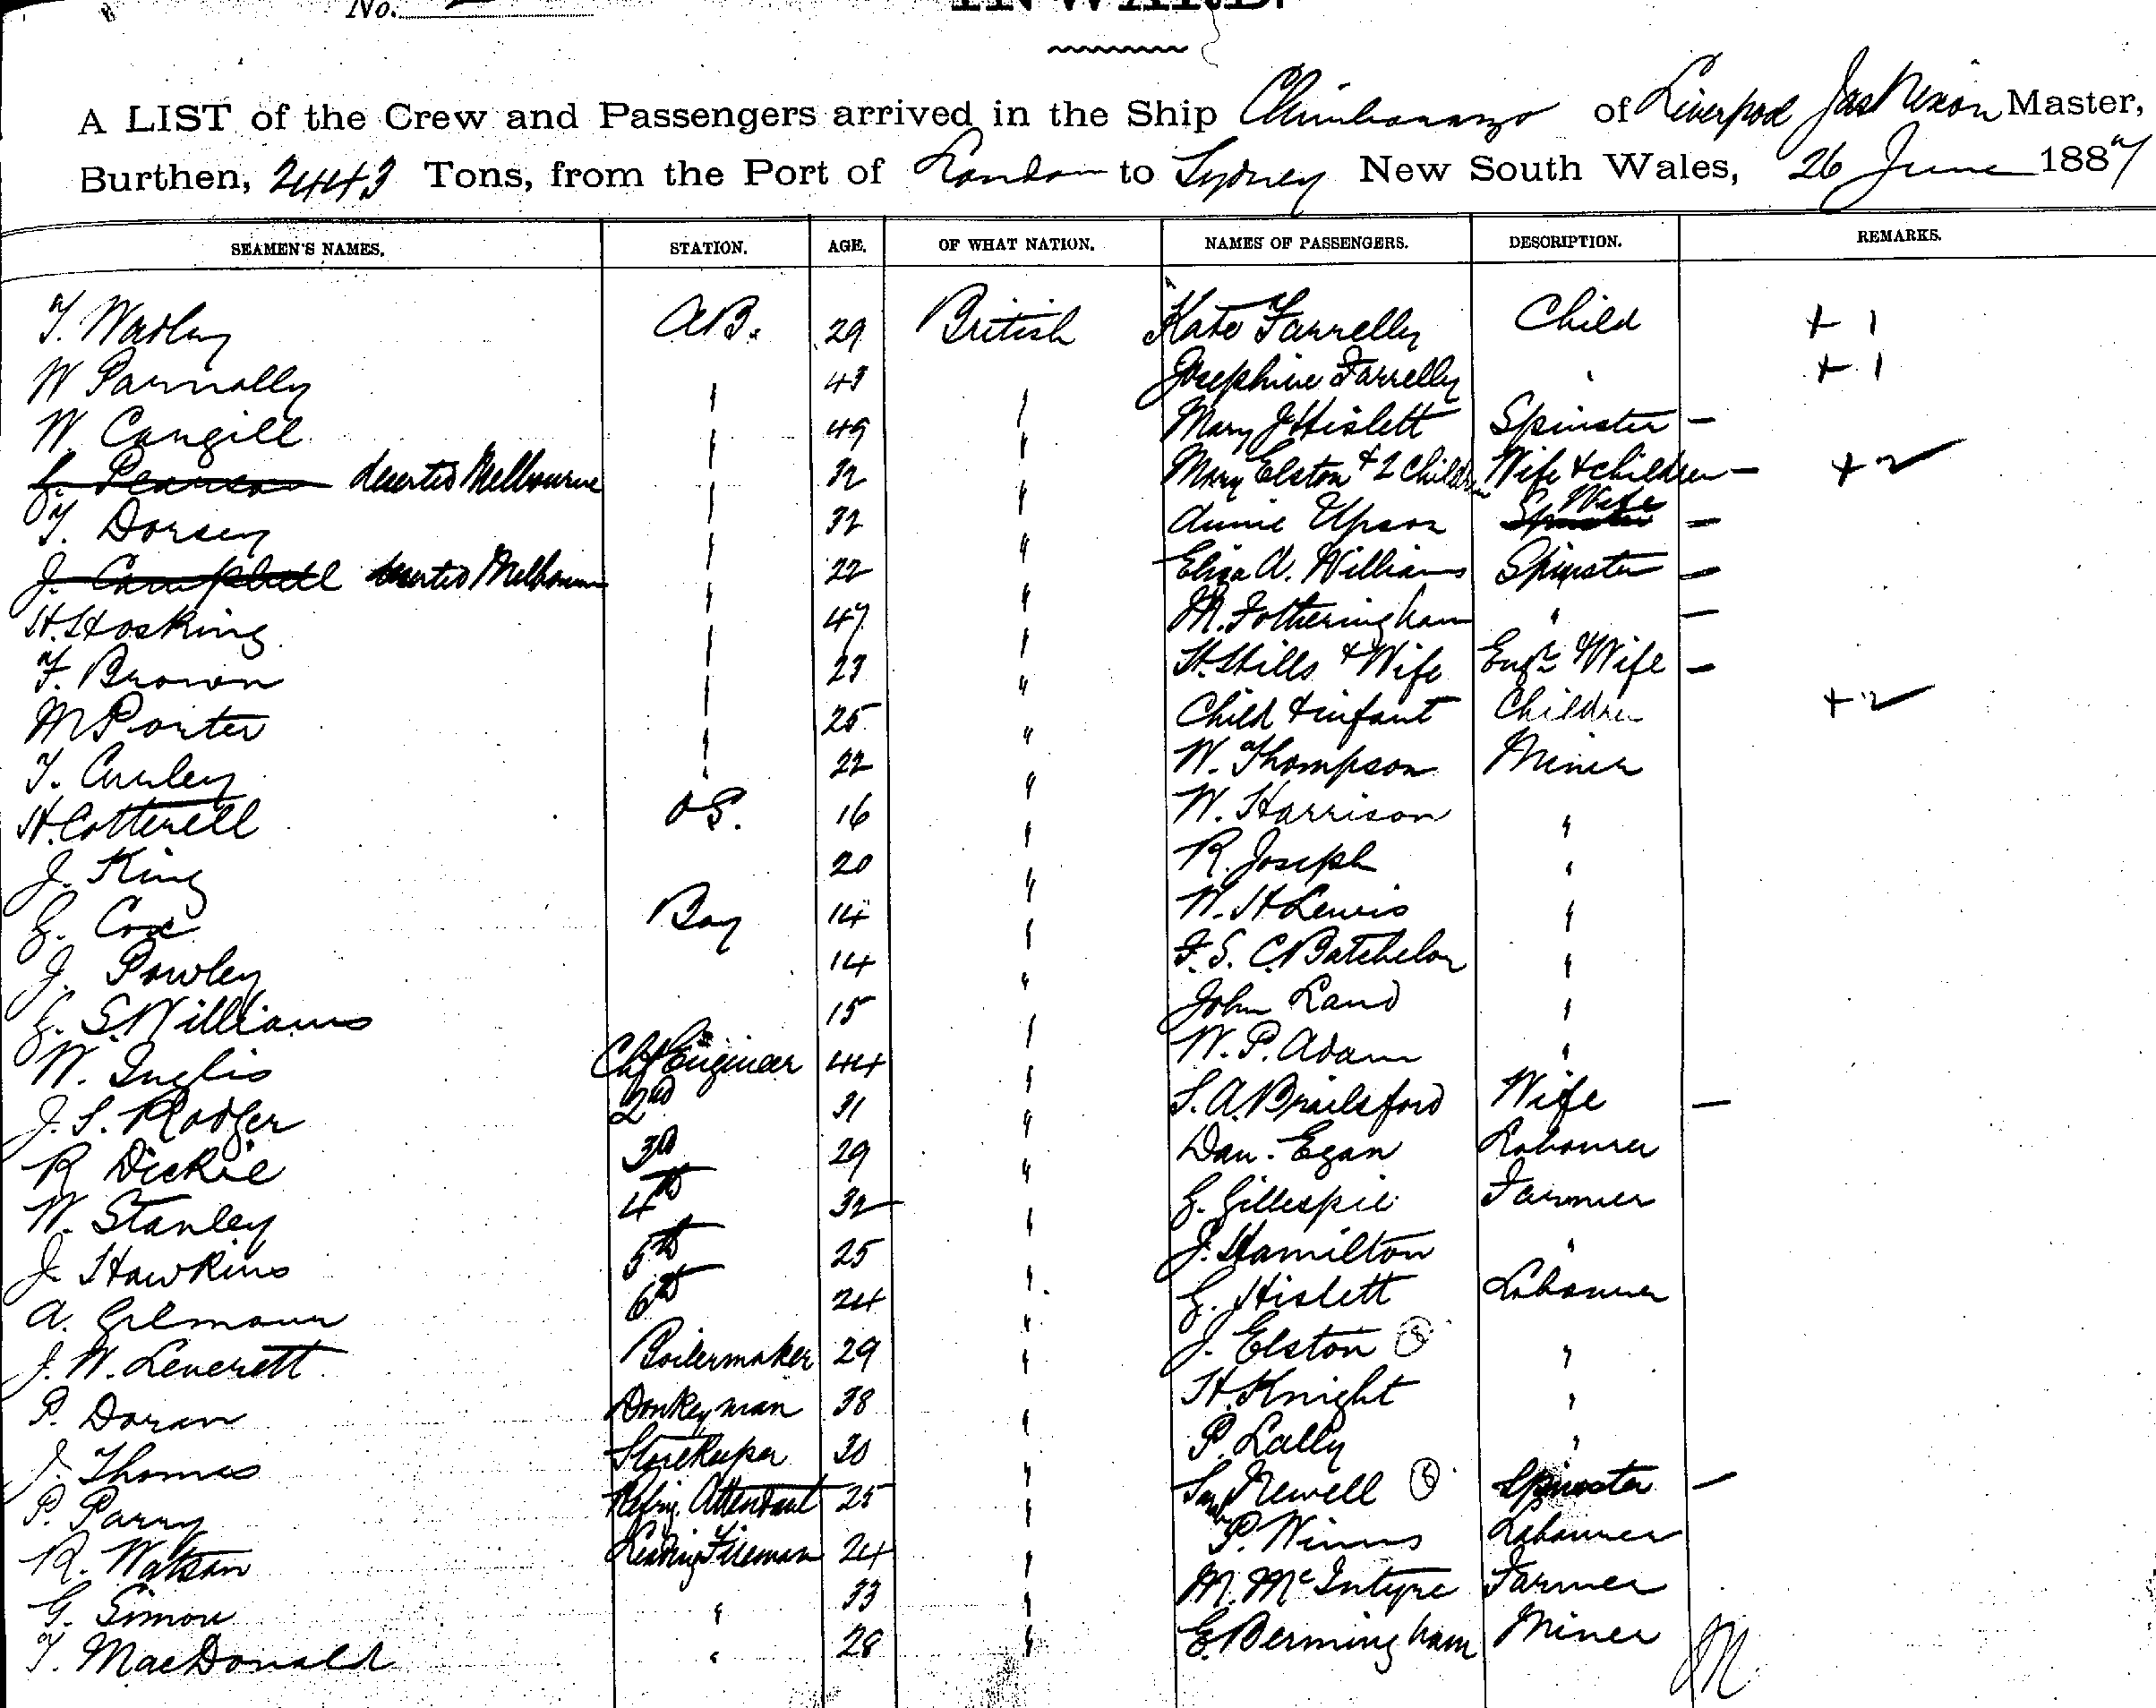 No.
INWARD.
A LIST of the Crew and Passengers arrived in the Ship Chimborazo of Liverpool Jas Nixon Master,
Burthen, 2443 Tons, from the Port of London to Sydney New South Wales, 26 June 1887
SEAMEN'S NAMES. STATION. AGE. OF WHAT NATION. NAMES OF PASSENGERS. DESCRIPTION. REMARKS.
T. A.B. 29 British Kate Farrelly Child + 1
W Parnally " 43 " Josephine Farrelly " + 1
W. Cangill " 49 " Mary J Hislett Spinster -
G. Pearson deserted Melbourne " 32 " Mary Elston + 2 Children Wife + children - + 2
T. Dorsey " 32 " Annie Upson Spinster Wife -
J. Campbell deserted Melbourne " 22 " Eliza A. Williams Spinster -
H. Hosking " 47 " M. Fotheringham " -
F. Brown " 23 " H. Hills + Wife Engr. Wife -
M Porter " 25 " Child + infant Children + 2
T. Curley " 22 " W. Thompson Miner
H. Cotterell O.S. 16 " W. Harrison "
J. King 20 " R. Joseph "
G. Cox Boy 14 " W. H Lewis "
J. Powley 14 " F. S. C. Batchelor "
G. S. Williams 15 " John Land "
W. Inglis Chf Engineer 44 " W. P. Adam "
J. S. Rodger 2nd 31 " S. A. Brailsford Wife -
R Dickie 3rd 29 " Dan. Egan Labourer
W. Stanley 4th 32 " G. Gillespie Farmer
J. Hawkins 5th 25 " J. Hamilton "
A. Gilmour 6th 24 " G. Hislett Labourer
J. W. Leverett Boilermaker 29 " J. Elston "
P. Doran Donkeyman 38 " H. Knight "
J. Thomas Storekeeper 30 " P. Lally "
P. Parry Refrig. Attendant 25 " Newell Spinster -
R. Watson Leading Fireman 24 " P. Winns Labourer
G. Simon " 33 " M. McIntyre Farmer
T. MacDonald " 28 " E. Bermingham Miner